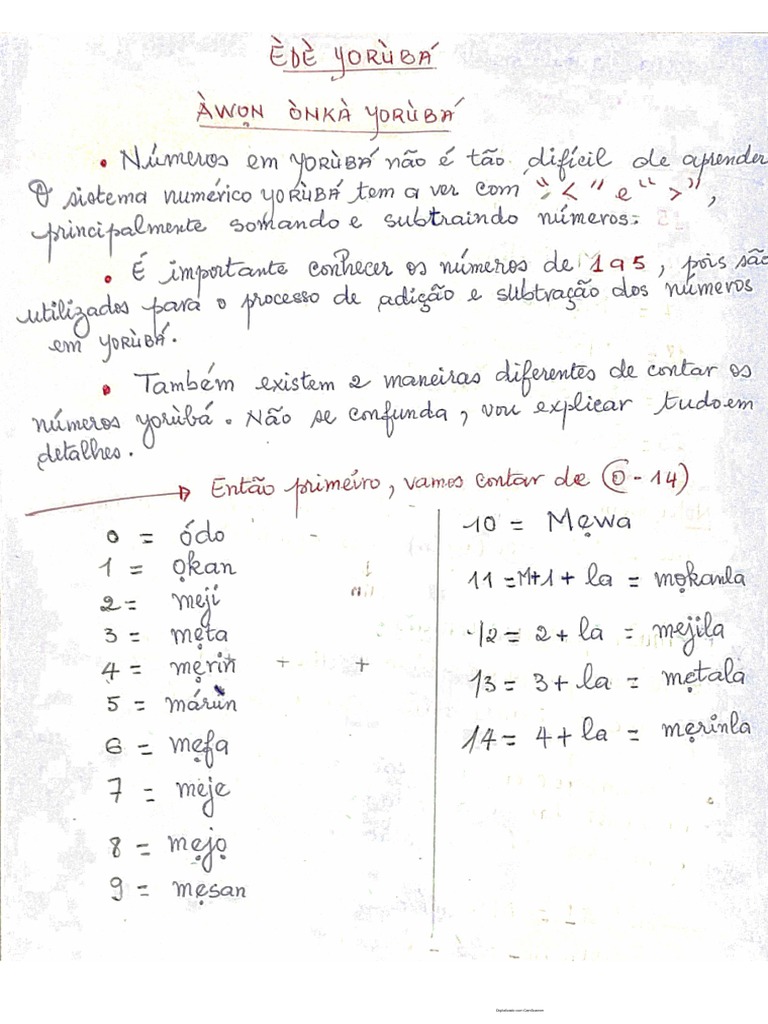 ÈDÈ YORÙBÁ
ÀWỌN ÒNKÀ YORÙBÁ
• Números em YORÙBÁ não é tão difícil de aprender
O sistema numérico YORÙBÁ tem a ver com "<" e ">",
principalmente somando e subtraindo números.
• É importante conhecer os números de 1 a 5, pois são
utilizados para o processo de adição e subtração dos números
em YORÙBÁ.
• Também existem 2 maneiras diferentes de contar os
números yorùbá. Não se confunda, vou explicar tudo em
detalhes.
→ Então primeiro, vamos contar de (0 - 14)
0 = ódo
1 = ọkan
2 = meji
3 = mẹta
4 = mẹrin
5 = márùn
6 = mẹfa
7 = meje
8 = mẹjọ
9 = mẹsan
10 = Mẹwa
11 = M+1 + la = mọkanla
12 = 2 + la = mejila
13 = 3 + la = mẹtala
14 = 4 + la = mẹrinla
Digitalizado com CamScanner